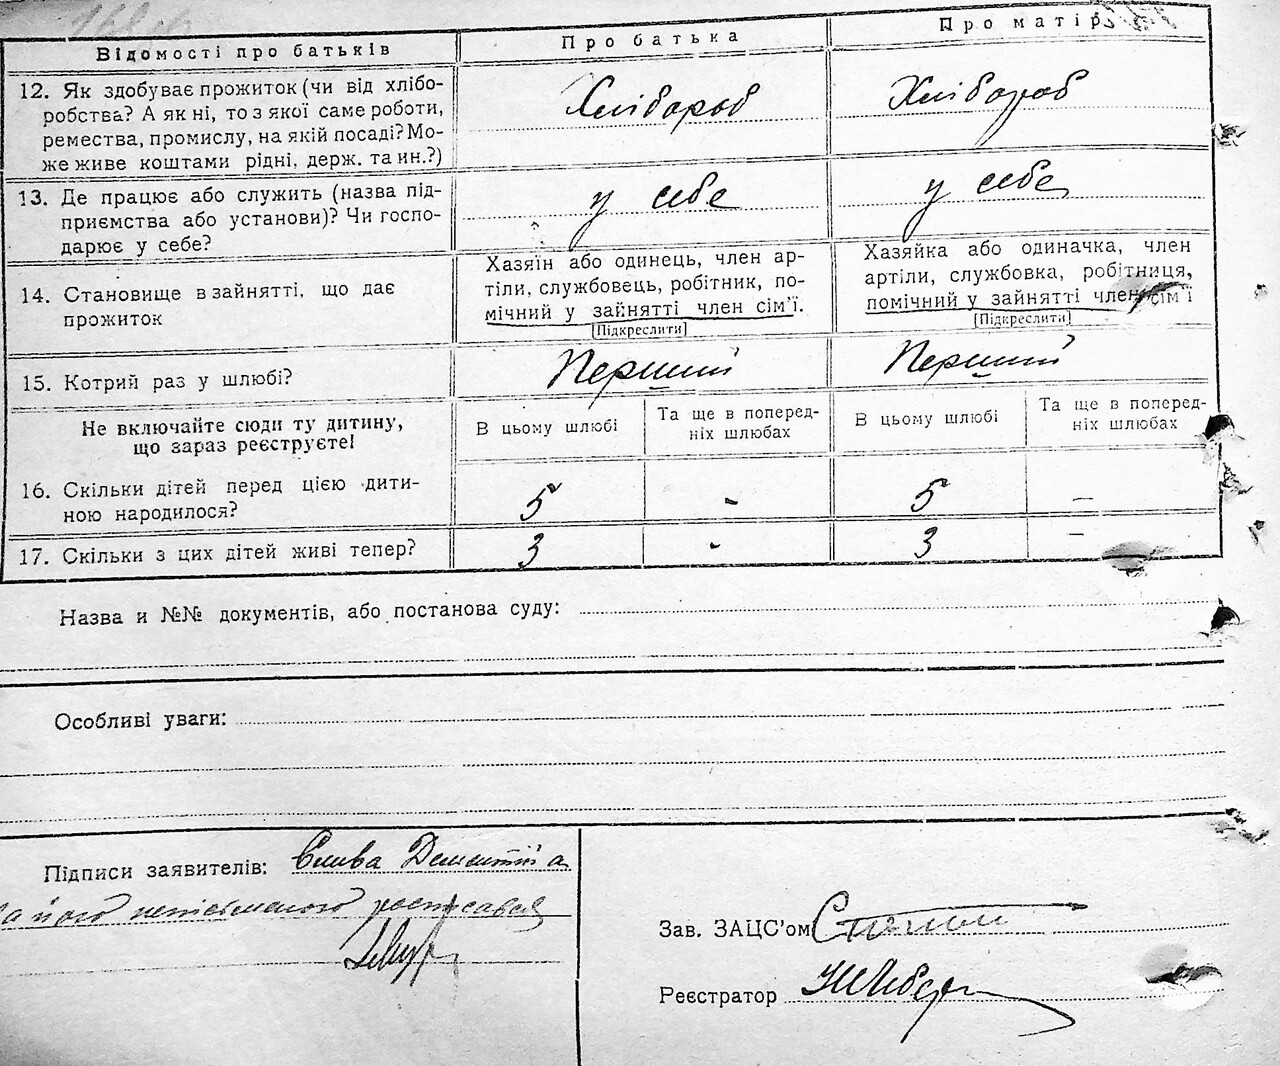 Відомості про батьків
Про батька
Про матір
12. Як здобуває прожиток (чи від хлібо-
робства? А як ні, то з якої саме роботи,
ремества, промислу, на якій посаді? Мо-
же живе коштами рідні, держ. та ин.?)
Хлібороб
Хлібороб
13. Де працює або служить (назва під-
приємства або установи)? Чи госпо-
дарює у себе?
у себе
у себе
14. Становище в зайнятті, що дає
прожиток
Хазяїн або одинець, член ар-
тіли, службовець, робітник, по-
мічний у зайнятті член сім'ї.
[Підкреслити]
Хазяйка або одиначка, член
артіли, службовка, робітниця,
помічний у зайнятті член сім'ї
[Підкреслити]
15. Котрий раз у шлюбі?
Перший
Перший
Не включайте сюди ту дитину,
що зараз реєструєте!
В цьому шлюбі
Та ще в поперед-
ніх шлюбах
В цьому шлюбі
Та ще в поперед-
ніх шлюбах
16. Скільки дітей перед цією дити-
ною народилося?
5
-
5
–
17. Скільки з цих дітей живі тепер?
3
-
3
–
Назва и №№ документів, або постанова суду:
Особливі уваги:
Підписи заявителів: Слива Дементій а
за його неписьменого росписався
Зав. ЗАЦС'ом
Реєстратор